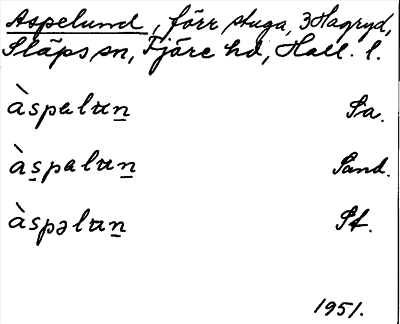 Aspelund, förr stuga, 3 Hagryd,
Släps sn, Fjäre hd, Hall. l.
àspalun Sa.
àspalun Sand.
àspəlun St.
1951.